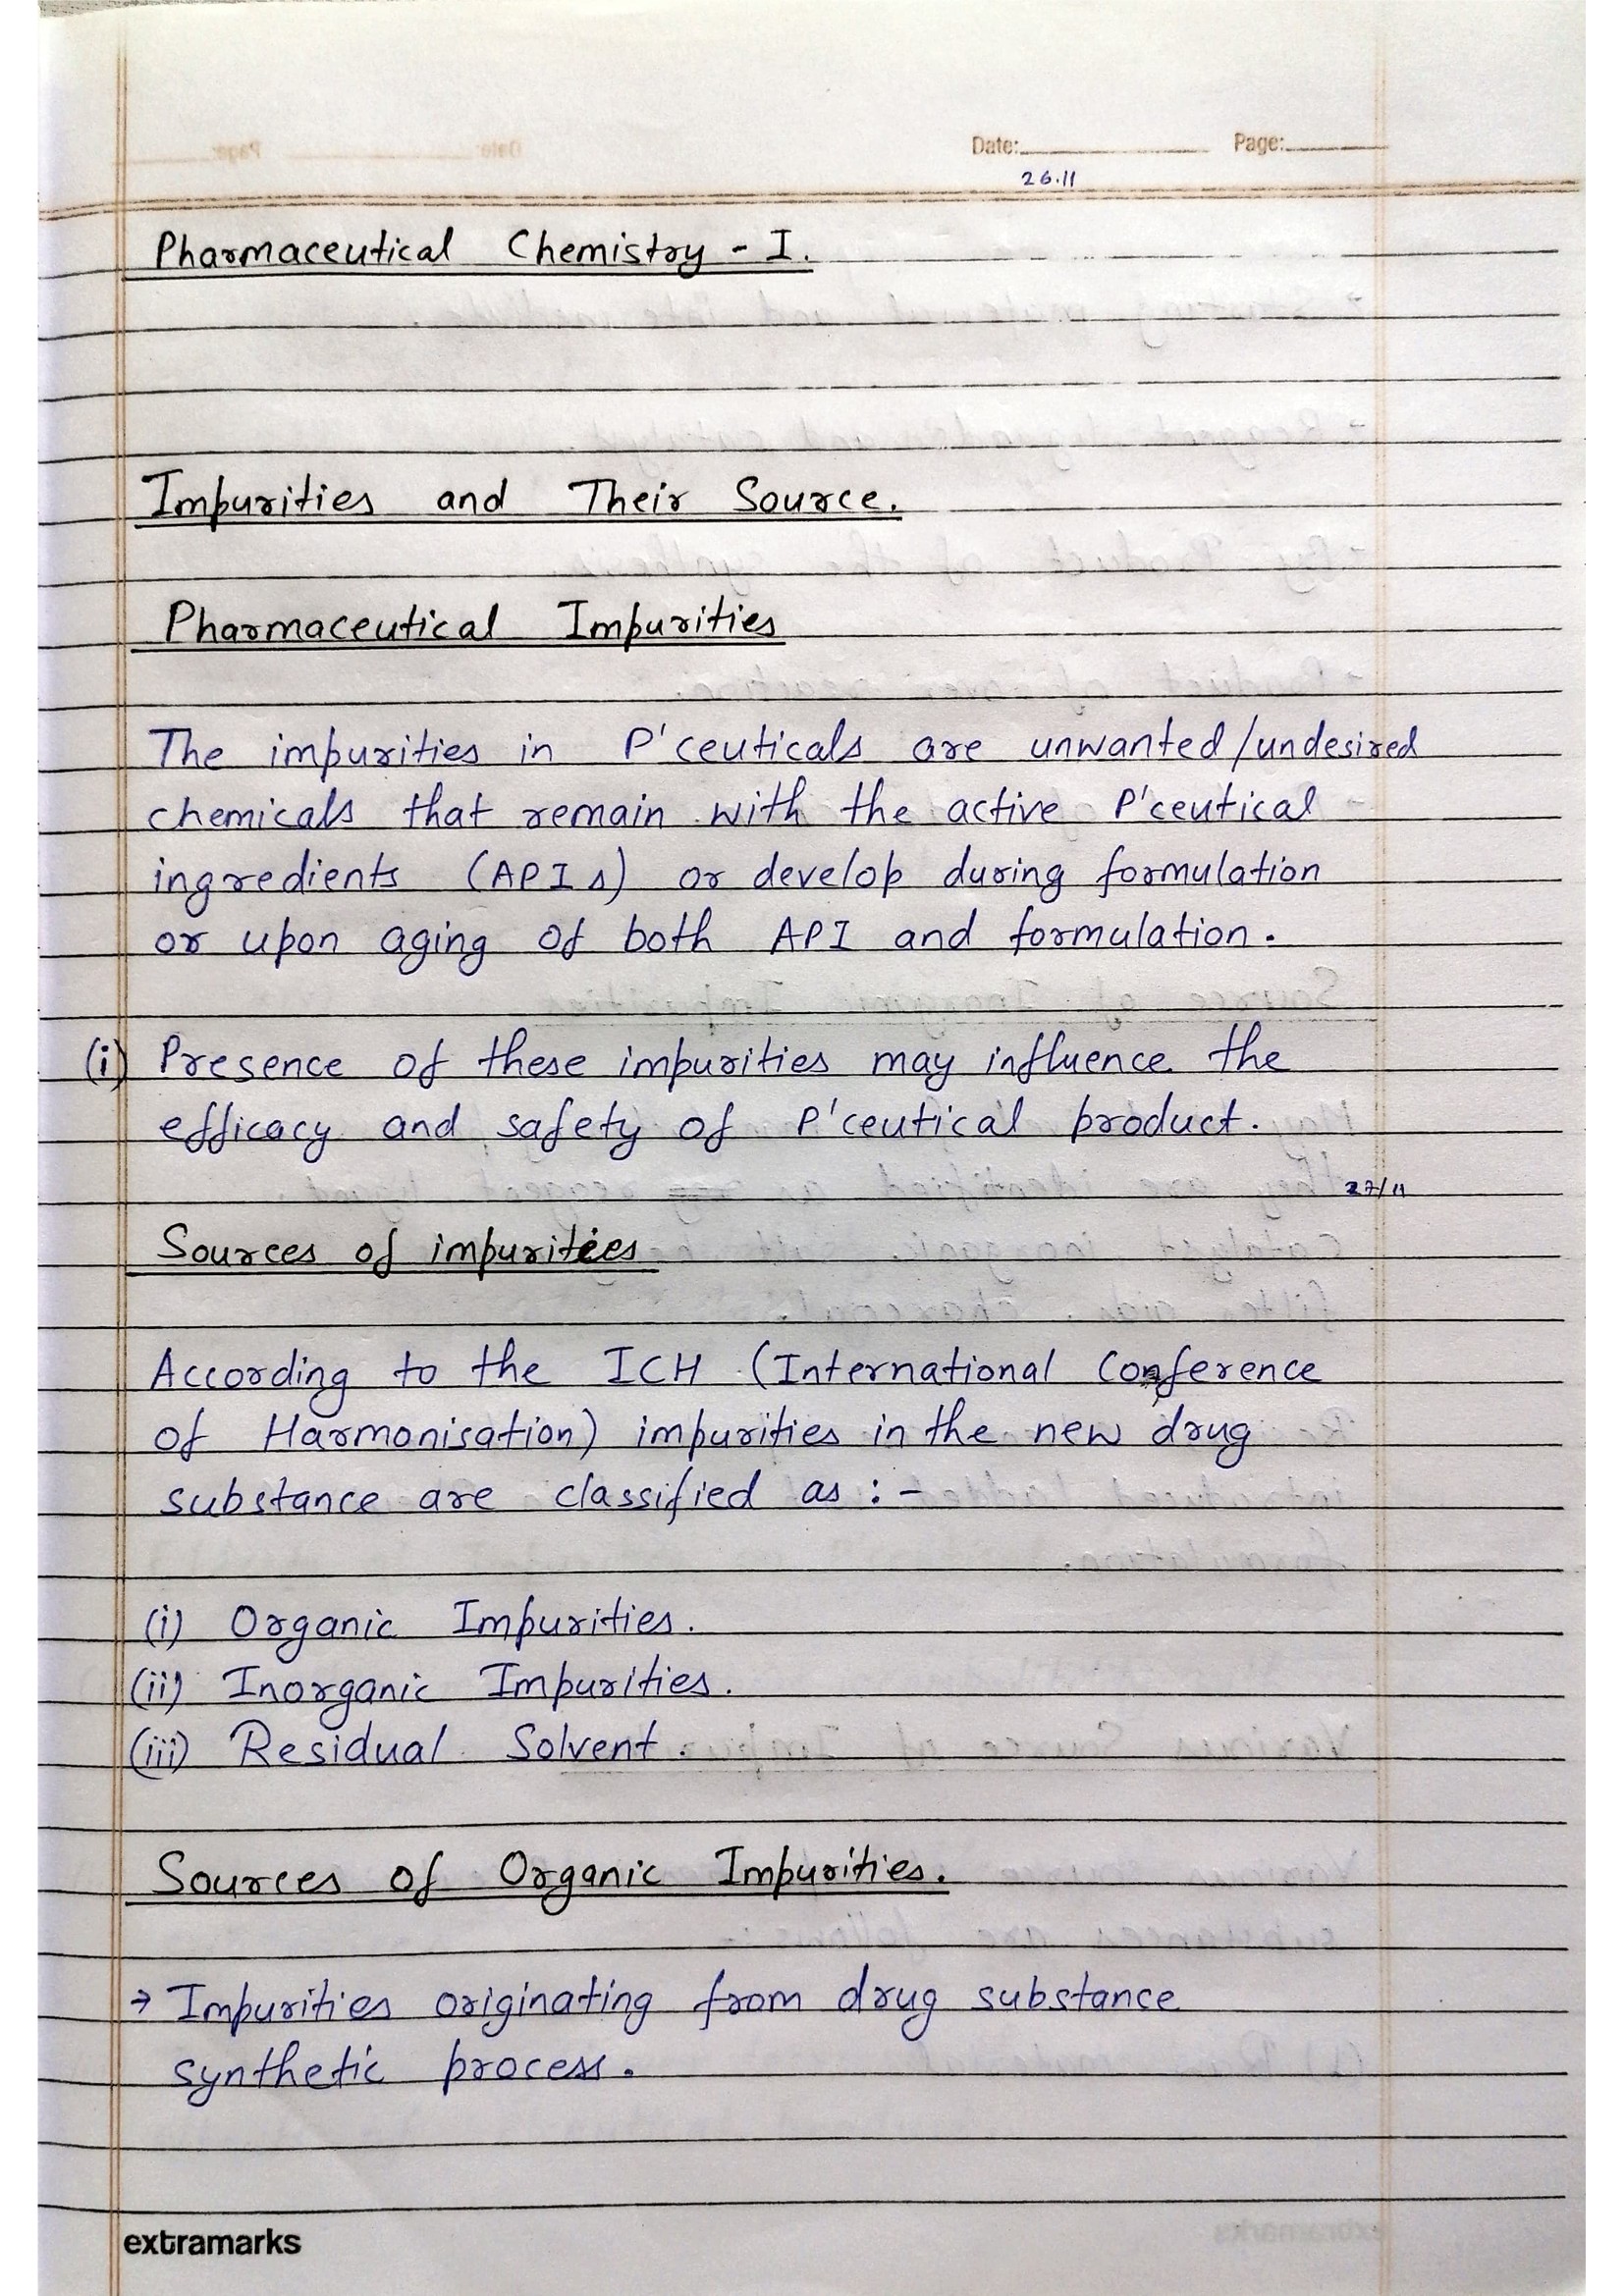 Date: Page:
26.11
Pharmaceutical Chemistry - I.
Impurities and Their Source.
Pharmaceutical Impurities
The impurities in P'ceuticals are unwanted/undesired
chemicals that remain with the active P'ceutical
ingredients (APIs) or develop during formulation
or upon aging of both API and formulation.
(i) Presence of these impurities may influence the
efficacy and safety of P'ceutical product.
27/11
Sources of impurities
According to the ICH (International Conference
of Harmonisation) impurities in the new drug
substance are classified as :-
(i) Organic Impurities.
(ii) Inorganic Impurities.
(iii) Residual Solvent.
Sources of Organic Impurities.
→ Impurities originating from drug substance
synthetic process.
extramarks